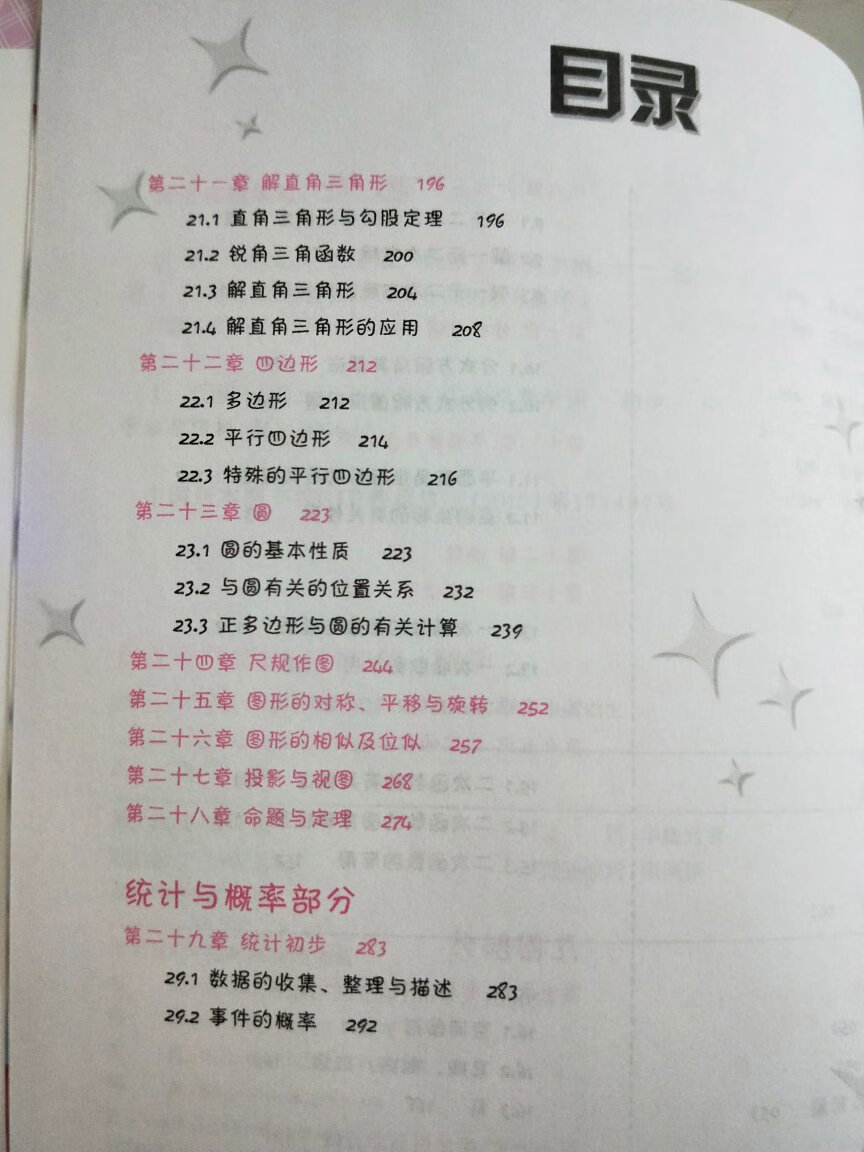 目录
第二十一章 解直角三角形 196
21.1 直角三角形与勾股定理 196
21.2 锐角三角函数 200
21.3 解直角三角形 204
21.4 解直角三角形的应用 208
第二十二章 四边形 212
22.1 多边形 212
22.2 平行四边形 214
22.3 特殊的平行四边形 216
第二十三章 圆 223
23.1 圆的基本性质 223
23.2 与圆有关的位置关系 232
23.3 正多边形与圆的有关计算 239
第二十四章 尺规作图 244
第二十五章 图形的对称、平移与旋转 252
第二十六章 图形的相似及位似 257
第二十七章 投影与视图 268
第二十八章 命题与定理 274
统计与概率部分
第二十九章 统计初步 283
29.1 数据的收集、整理与描述 283
29.2 事件的概率 292